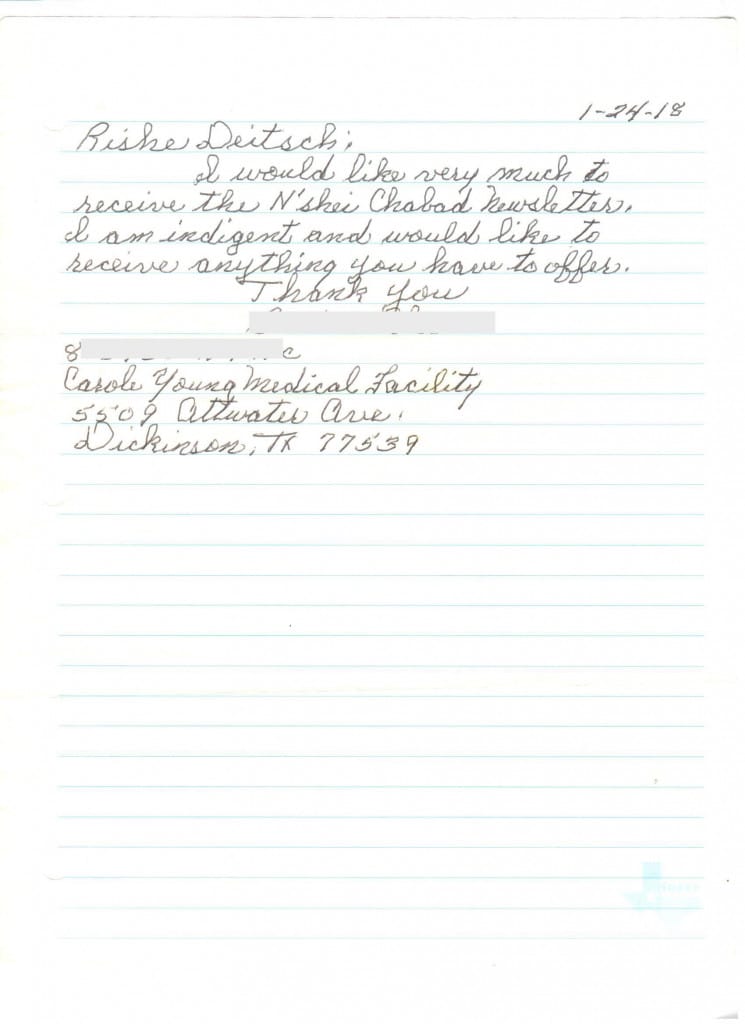 1-24-18
Rishe Deitsch;
I would like very much to
receive the N'shei Chabad Newsletter.
I am indigent and would like to
receive anything you have to offer.
Thank you
8 c
Carole Young Medical Facility
5509 Attwater Ave.
Dickinson, TX 77539